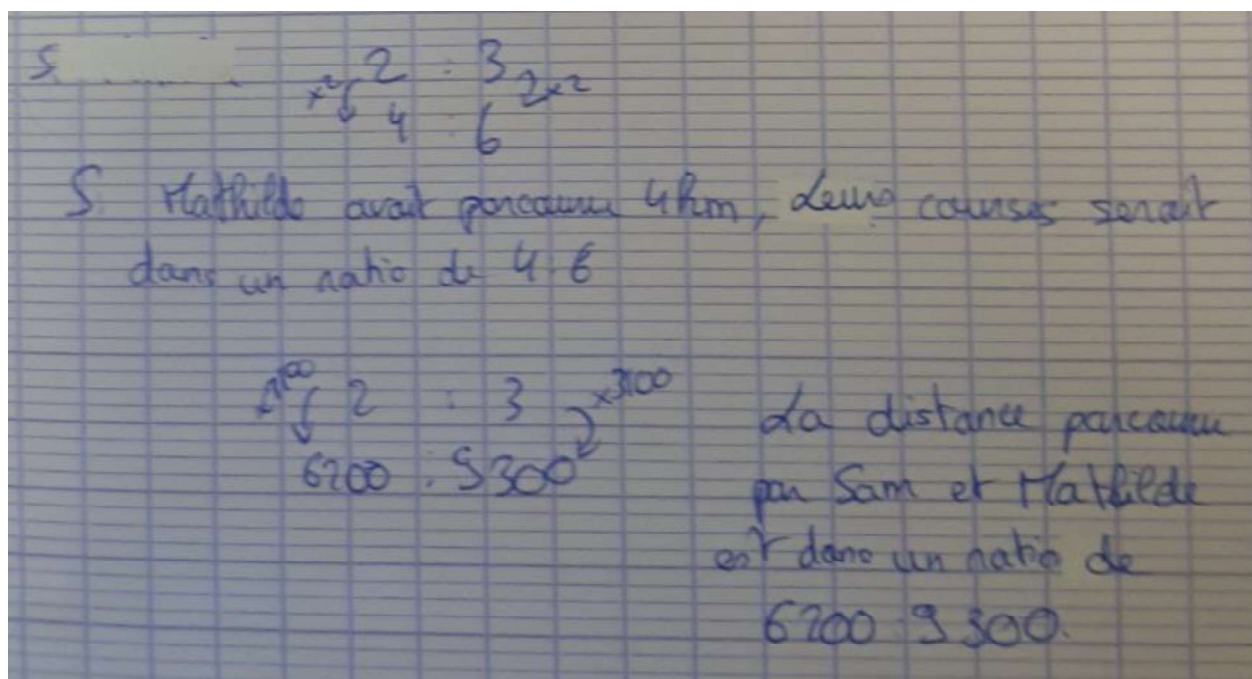 S
2 : 3
×2 ×2
4 : 6
S Mathilde avait parcouru 4km, Leurs courses serait
dans un ratio de 4:6
2 : 3 ×3100
6200 : 9300
La distance parcouru
par Sam et Mathilde
est dans un ratio de
6200:9300.